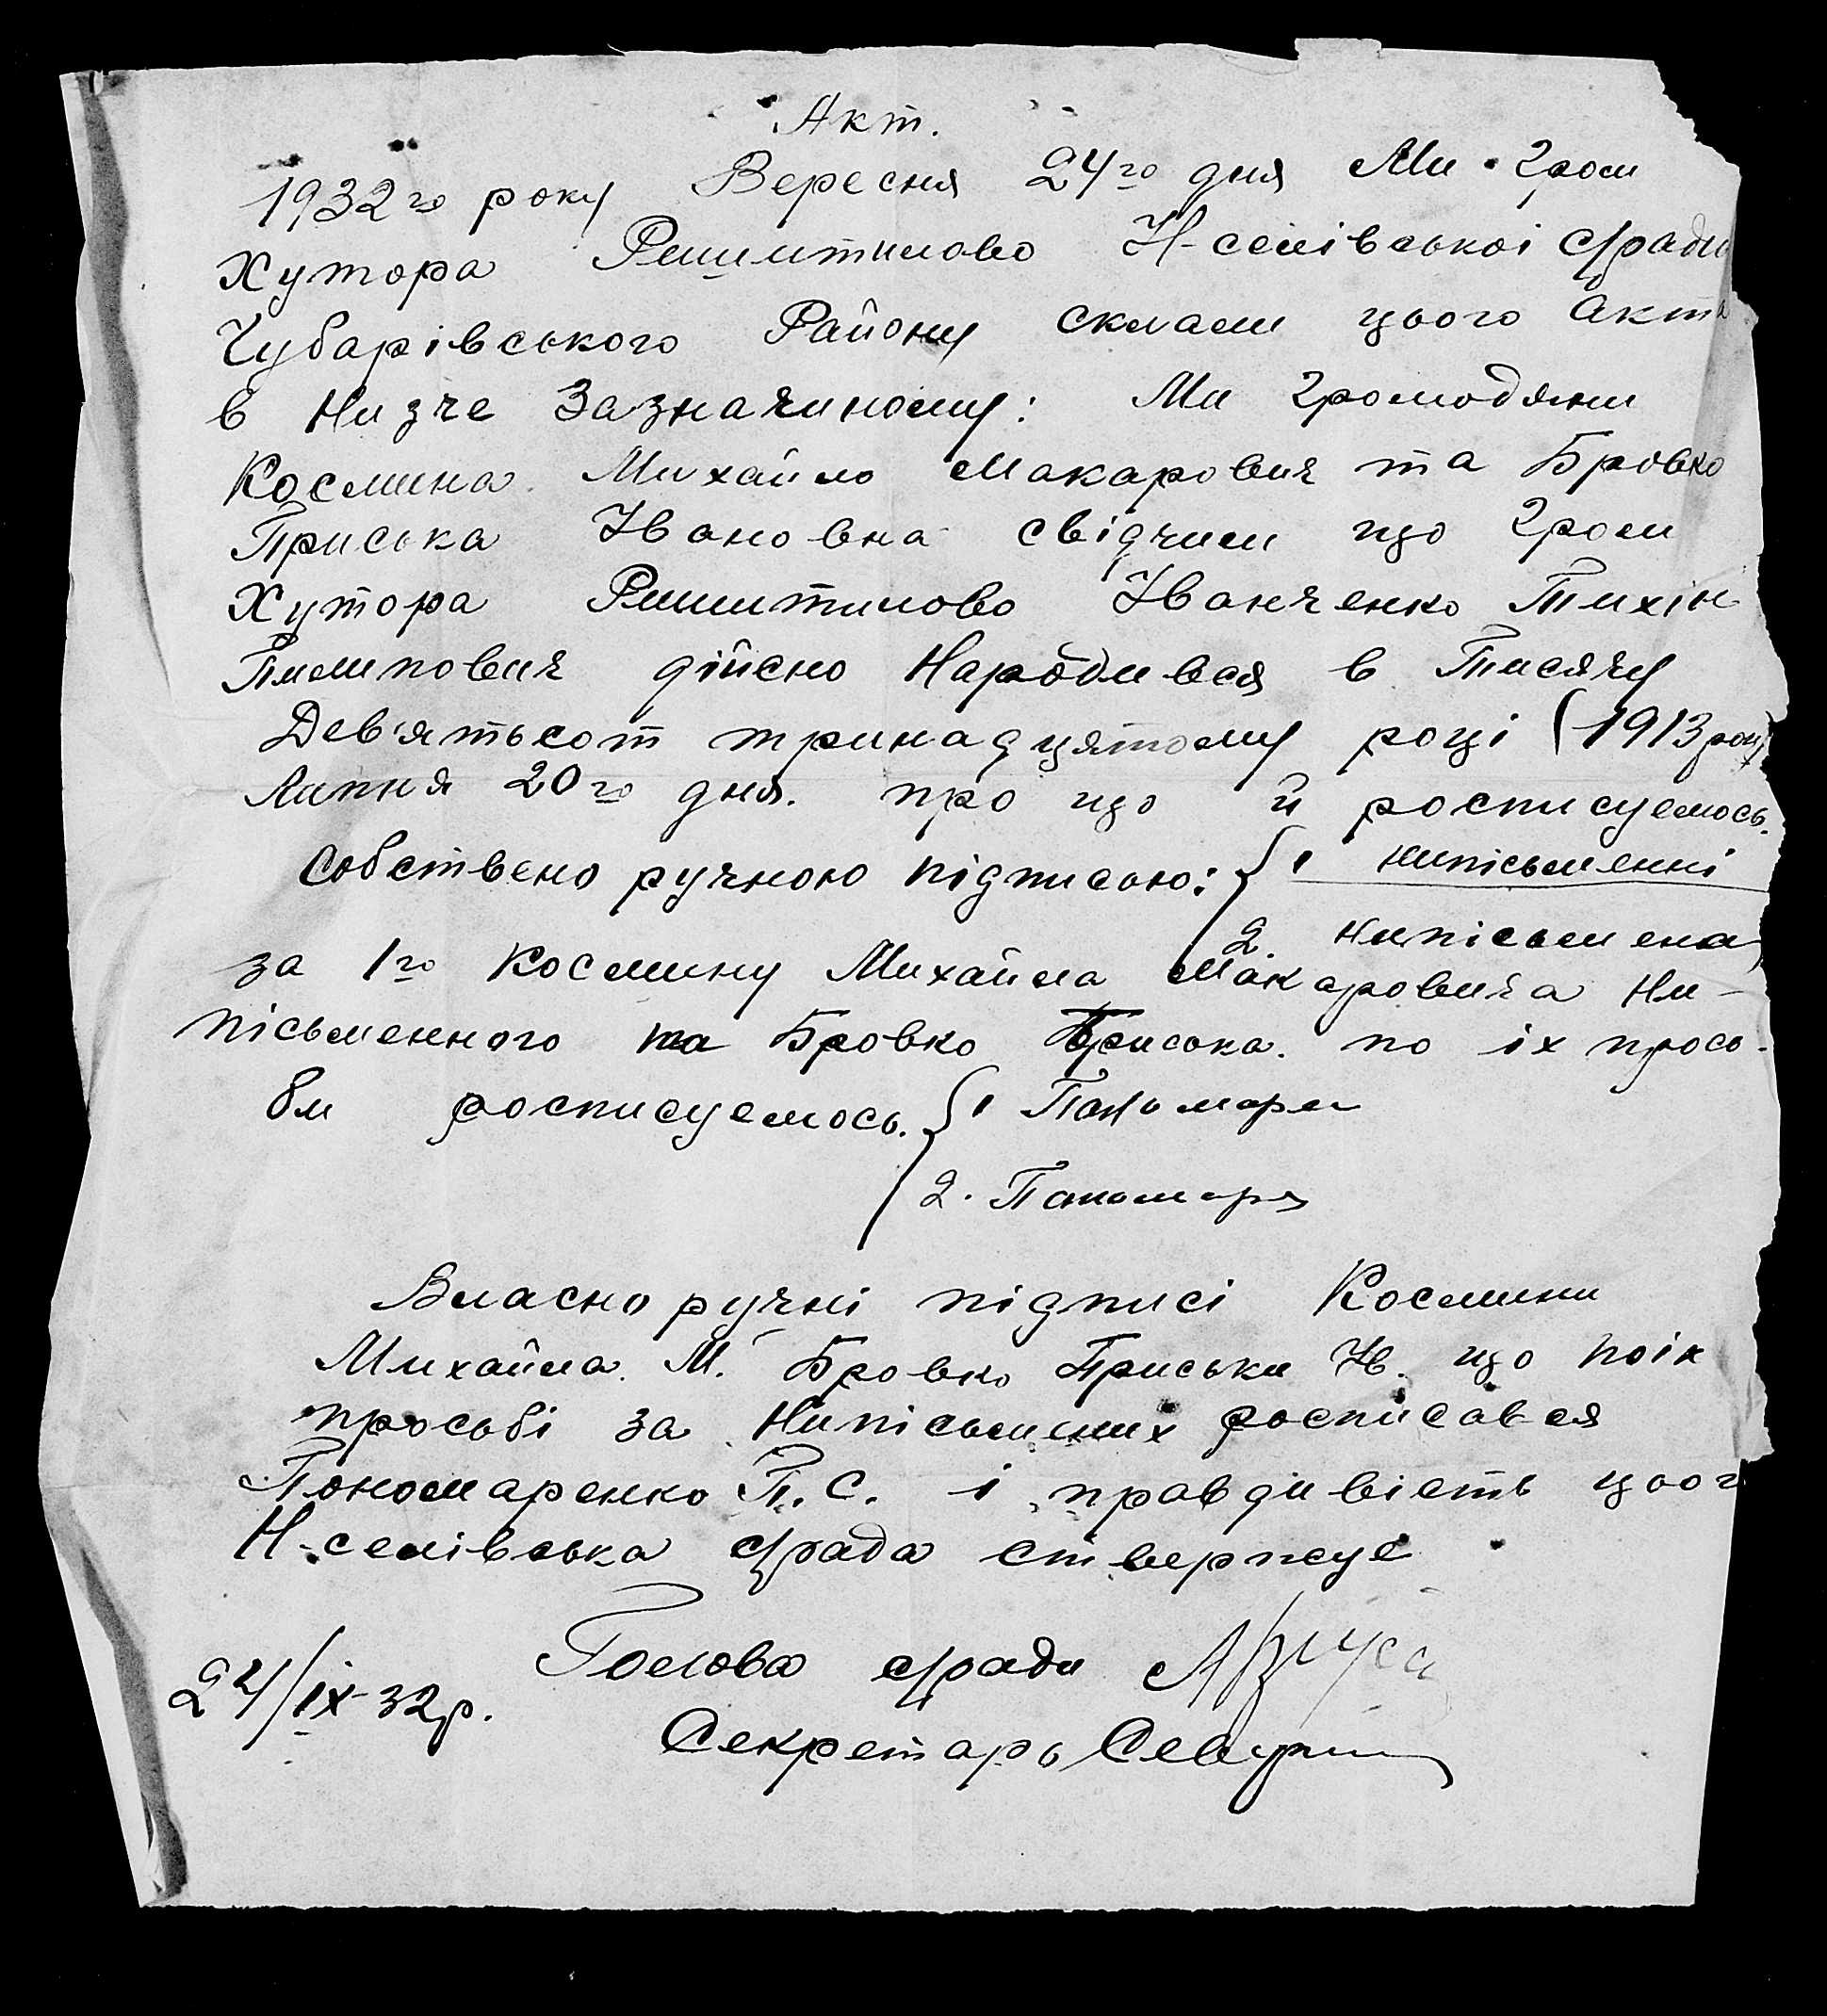 Акт.
1932го року Вересня 24го дня Ми гром
Хутора Ришитилово Н-селівської с/ради
Чубарівського Району склали цього акта
в Низче Зазначиному: Ми громодяни
Космина Михайло Макарович та Бровко
Приська Івановна свідчим що гром
Хутора Ришитилово Іванченко Тихін
Пилипович дійсно Народився в Тисячу
Дев'ятьсот тринадцятому році (1913 року)
Липня 20го дня. про що й росписуемось.
Собствено ручною підписью: { 1 нипісьменні
2. Нипісьмена
за 1го Космину Михайла Макаровича Ни-
пісьменного та Бровко Приська. по іх прось-
би росписуемось. { 1 Паномаре
2. Паномаря
Власно ручні підписі Космини
Михайла М. Бровко Приськи Ів. що поіх
просьбі за Нипісьмених росписався
Пономаренко П. С. і правдивість цього
Н-селівська с/рада ствержує
Голова с/ради
24/ІХ-32р.
Секретарь